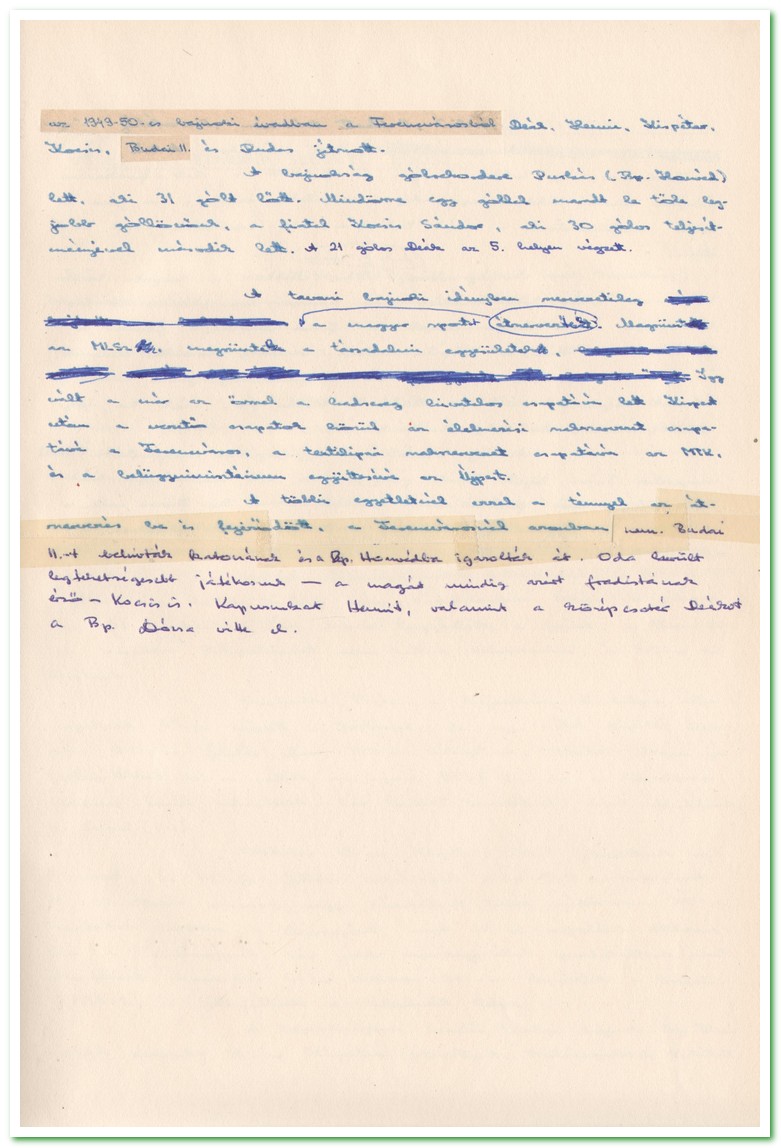 az 1949-50-es bajnoki évadban a Ferencvárosból Deák, Henni, Kispéter,
Kocsis, Budai II. és Rudas játszott.
A bajnokság gólrekordere Puskás (Bp. Honvéd)
lett, aki 31 gólt lőtt. Mindössze egy góllal maradt le tőle leg-
jobb góllövőnk, a fiatal Kocsis Sándor, aki 30 gólos teljesít-
ményével második lett. A 21 gólos Deák az 5. helyen végzett.
A tavaszi bajnoki idényben
a magyar sportot átszervezték. Megszűnt
az MLSz, megszüntették a társadalmi egyesületeket, Így
vált a már az ősszel a hadsereg hivatalos csapatává lett Kispest
után a vezető csapatok közül az élelmezési szakszervezet csapa-
tává a Ferencváros, a textilipari szakszervezet csapatává az MTK,
és a belügyminisztérium együttesévé az Újpest.
A többi egyletnél ezzel a ténnyel az át-
szervezés be is fejeződött, a Ferencvárosnál azonban nem. Budai
II.-t behívták katonának és a Bp. Honvédba igazolták át. Oda került
legtehetségesebb játékosunk — a magát mindig azért fradistának
érző – Kocsis is. Kapusunkat Hennit, valamint a középcsatár Deákot
a Bp. Dózsa vitte el.